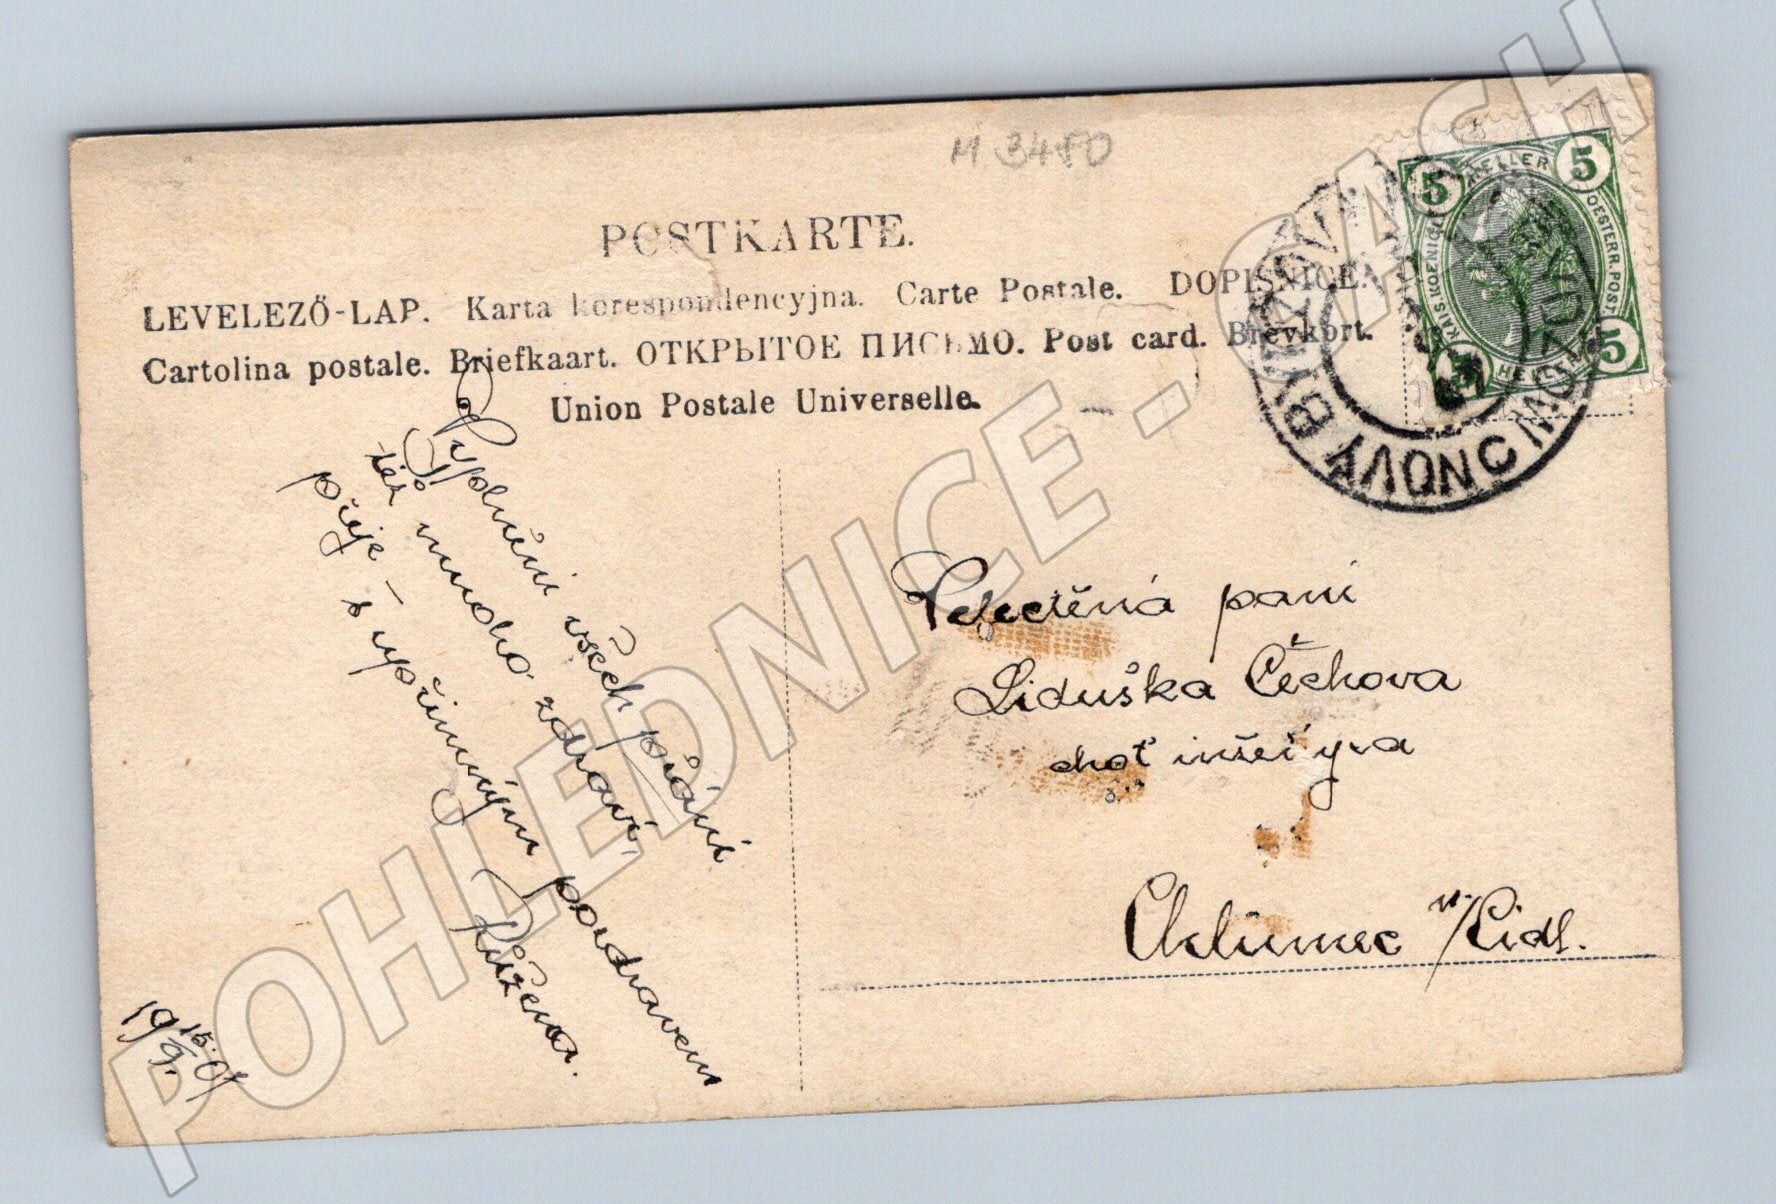 M 3450
POSTKARTE.
LEVELEZŐ-LAP. Karta korespondencyjna. Carte Postale. DOPISNICE.
Cartolina postale. Briefkaart. ОТКРЫТОЕ ПИСЬМО. Post card. Brevkort.
Union Postale Universelle.
5 HELLER 5
KAIS. KOENIGL. OESTERR. POST.
HELLER 5
NOVÝ BYDŽOV
Vyplnění všech přání
též mnoho zdraví,
přeje - s upřímným pozdravem
Růžena.
19 15./9. 07
Velectěná paní
Liduška Čechova
choť inženýra
Chlumec n/Cidl.
POHLEDNICE.SACH